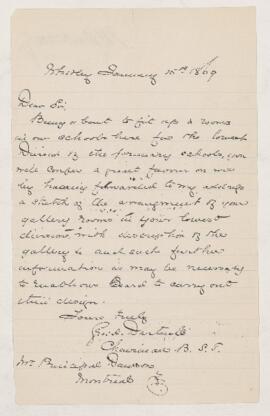 Whitby January 15th 1869
Dear Sir
Being about to fit up a room
in our schools here for the lowest
Division of the primary schools, you
will confer a great favour on me
by having forwarded to my address
a sketch of the arrangement of your
gallery rooms in your lowest
division with description of the
gallery & and such further
information as may be necessary
to enable our Board to carry out
their design.
Yours truly
Chairman B. S. T.
Mr Principal Dawson
Montreal